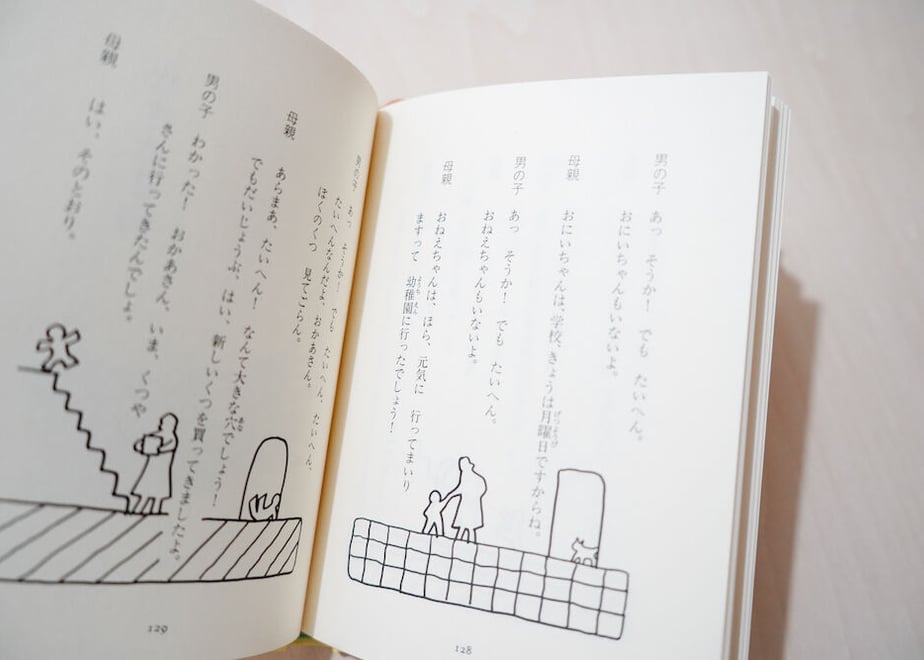 男の子　あっ　そうか！　でも　たいへん。
おにいちゃんもいないよ。
母親　おにいちゃんは、学校、きょうは月曜日ですからね。
男の子　あっ　そうか！　でも　たいへん。
おねえちゃんもいないよ。
母親　おねえちゃんは、ほら、元気に　行ってまいり
ますって　幼稚園に行ったでしょう！
128
男の子　あっ　そうか！　でも　たいへん、たいへん、
たいへんなんだよ、おかあさん。
ぼくのくつ　見てごらん。
母親　あらまあ、たいへん！　なんて大きな穴でしょう！
でもだいじょうぶ、はい、新しいくつを買ってきましたよ。
男の子　わかった！　おかあさん、いま、くつや
さんに行ってきたんでしょ。
母親　はい、そのとおり。
129